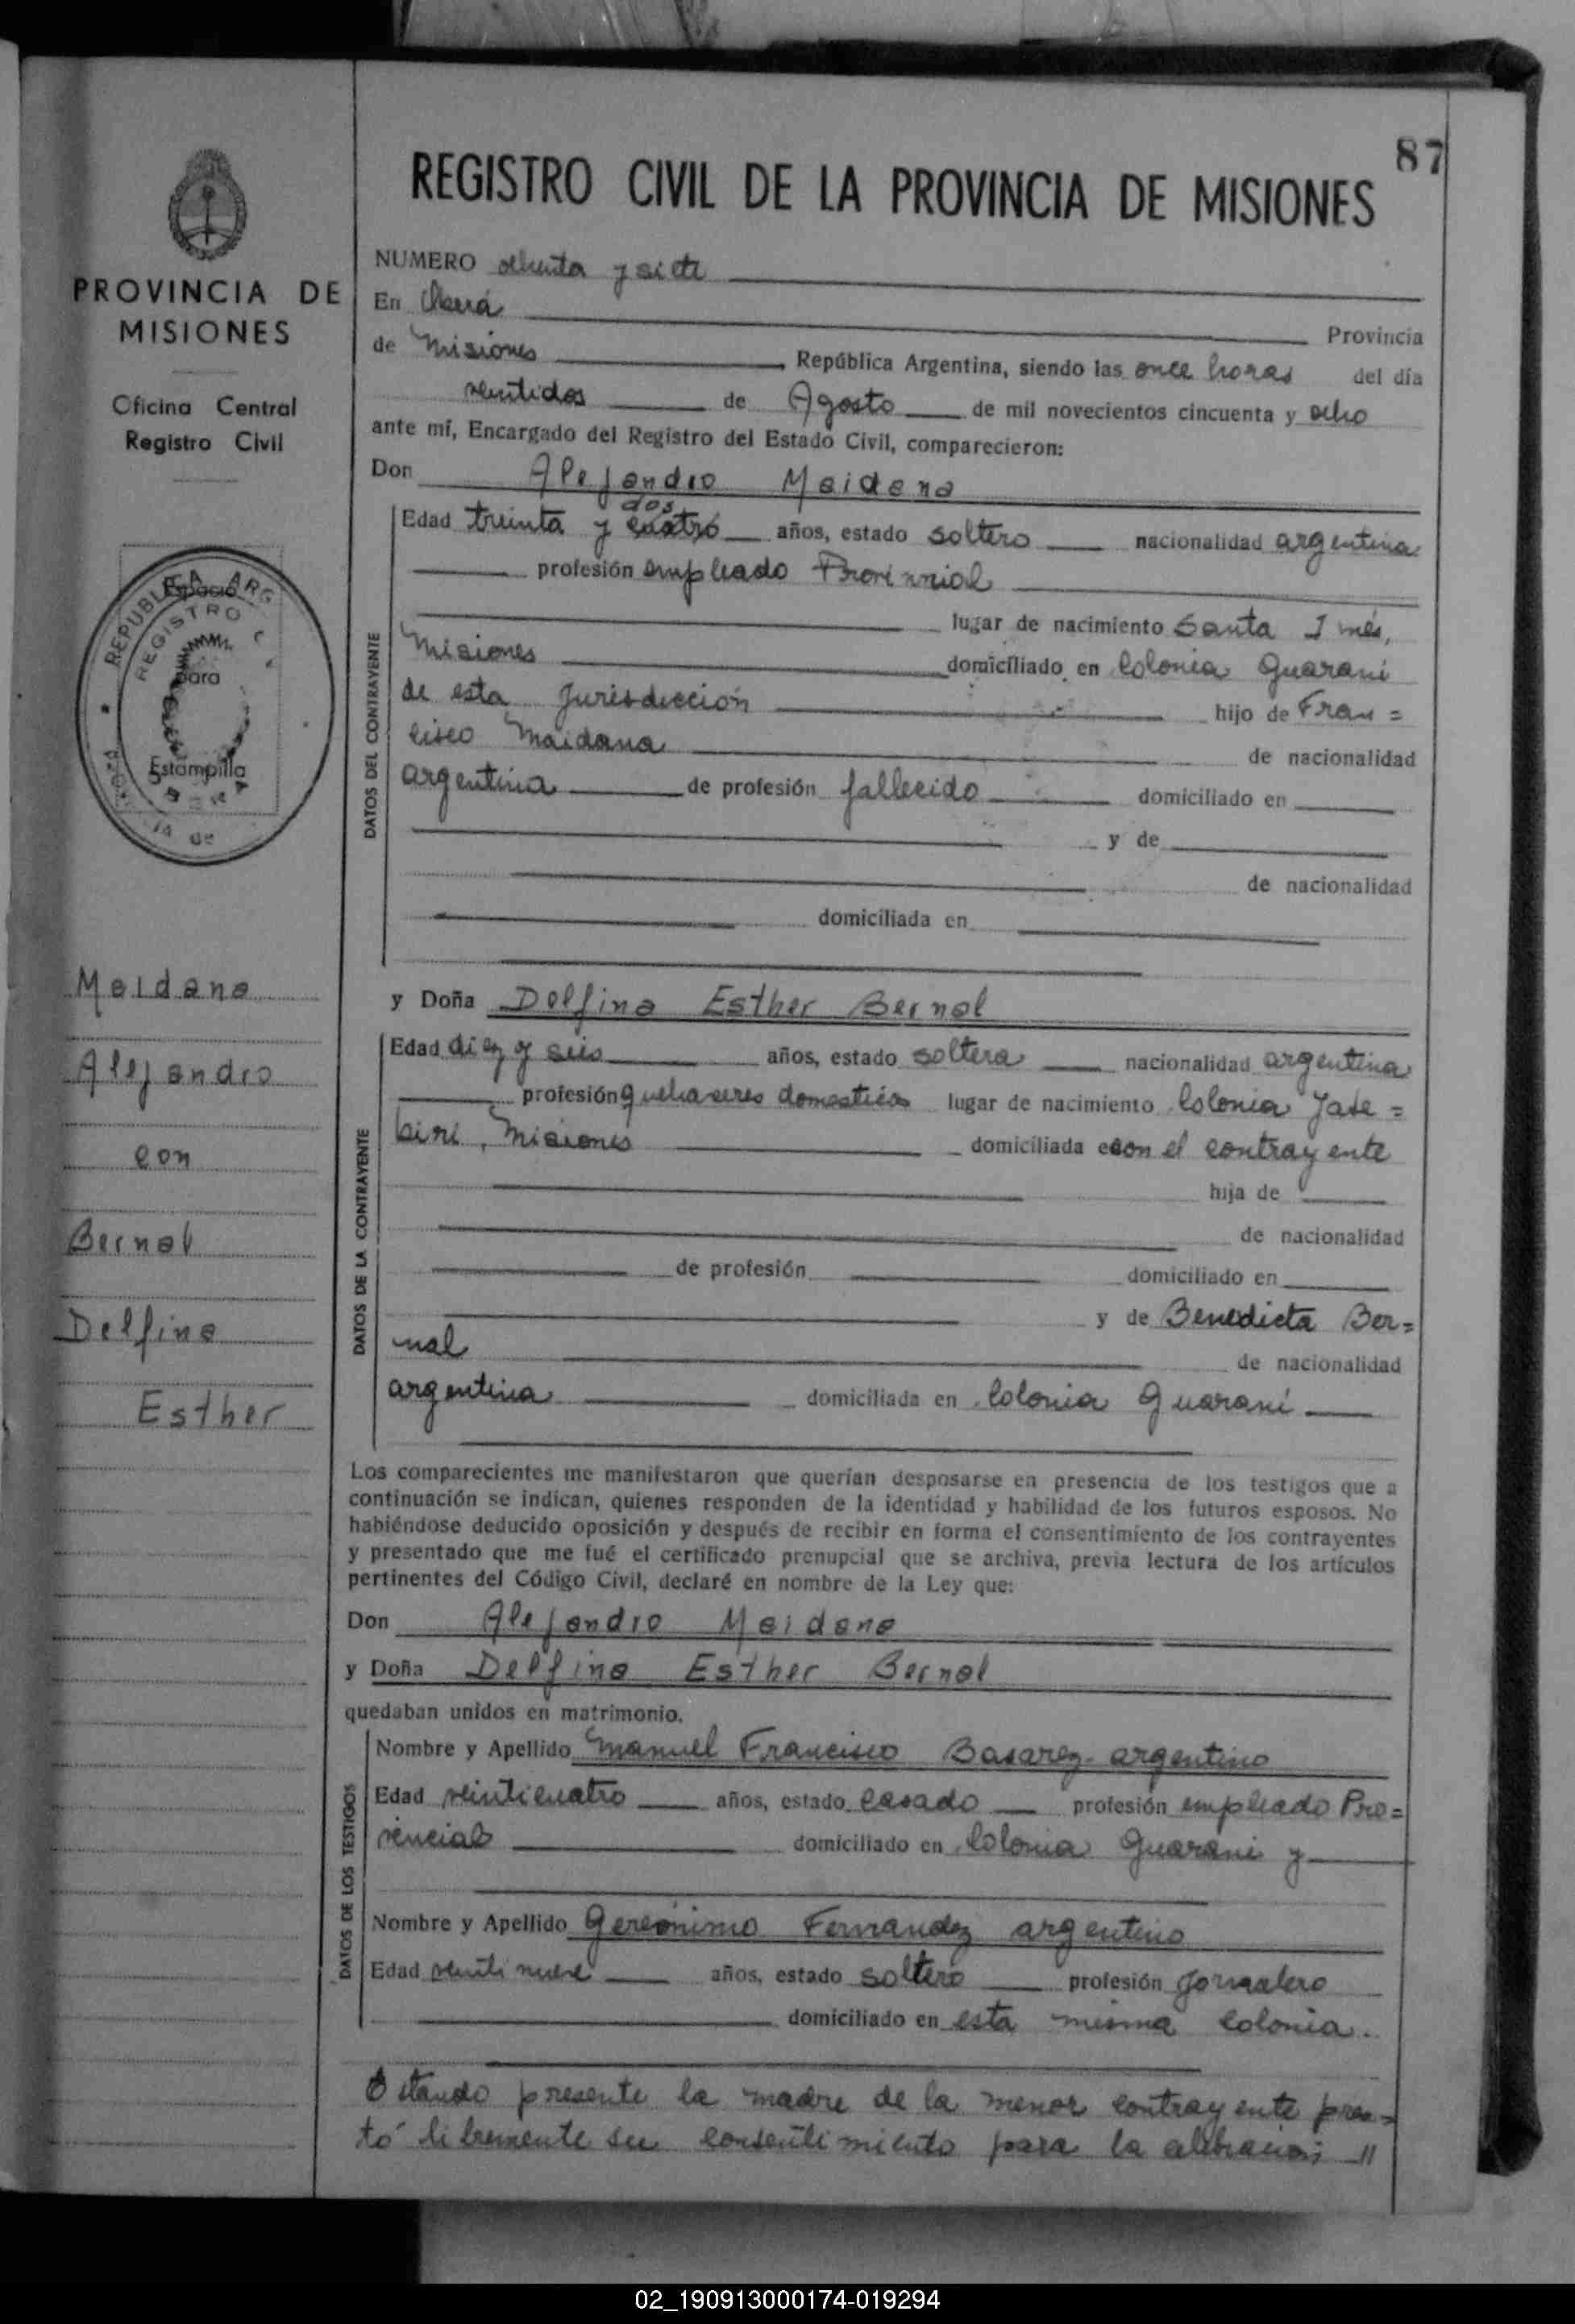 87
REGISTRO CIVIL DE LA PROVINCIA DE MISIONES
PROVINCIA DE
MISIONES
Oficina Central
Registro Civil
REPUBLICA ARG
REGISTRO
Espacio
para
Estampilla
Maidana
Alejandro
con
Bernal
Delfina
Esther
NUMERO ochenta y siete
En Oberá
Provincia
de Misiones República Argentina, siendo las once horas del día
ventidos de Agosto de mil novecientos cincuenta y ocho
ante mí, Encargado del Registro del Estado Civil, comparecieron:
Don Alejandro Maidana
dos
Edad treinta y cuatro años, estado soltero nacionalidad argentina
profesión empleado Provinnial
lugar de nacimiento Santa Inés,
Misiones domiciliado en Colonia Guarani
de esta Jurisdiccion hijo de Fran=
cisco Maidana de nacionalidad
argentina de profesión fallecido domiciliado en
y de
de nacionalidad
domiciliada en
DATOS DEL CONTRAYENTE
y Doña Delfina Esther Bernal
Edad diez y seis años, estado soltera nacionalidad argentina
profesión quehaseres domesticos lugar de nacimiento Colonia Yabe=
biri, Misiones domiciliada econ el contrayente
hija de
de nacionalidad
de profesión domiciliado en
y de Benedicta Ber=
nal de nacionalidad
argentina domiciliada en Colonia Guaraní
DATOS DE LA CONTRAYENTE
Los comparecientes me manifestaron que querían desposarse en presencia de los testigos que a
continuación se indican, quienes responden de la identidad y habilidad de los futuros esposos. No
habiéndose deducido oposición y después de recibir en forma el consentimiento de los contrayentes
y presentado que me fué el certificado prenupcial que se archiva, previa lectura de los artículos
pertinentes del Código Civil, declaré en nombre de la Ley que:
Don Alejandro Maidana
y Doña Delfina Esther Bernal
quedaban unidos en matrimonio.
Nombre y Apellido Manuel Francisco Basarez- argentino
Edad veinticuatro años, estado casado profesión empleado Pro=
vencial domiciliado en Colonia Guarani y
Nombre y Apellido Gerónimo Fernandez argentino
Edad venti nueve años, estado soltero profesión Jornalero
domiciliado en esta misma colonia.
DATOS DE LOS TESTIGOS
Estando presente la madre de la menor contrayente pres=
tó libremente su consentimiento para la celebración; //
02_190913000174-019294